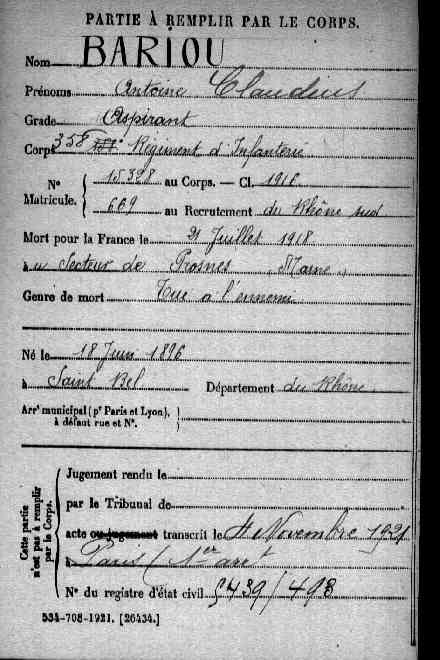 PARTIE À REMPLIR PAR LE CORPS.
Nom BARIOU
Prénoms Antoine Claudius
Grade Aspirant
Corps 358e Régiment d'Infanterie
N° Matricule. 15328 au Corps. — Cl. 1916
669 au Recrutement du Rhône sud
Mort pour la France le 21 Juillet 1918
à u Secteur de Prosnes Marne
Genre de mort Tué à l'ennemi
Né le 18 Juin 1896
à Saint Bel Département du Rhône
Arrt municipal (pr Paris et Lyon), à défaut rue et N°.
Cette partie n'est pas à remplir par le Corps.
Jugement rendu le
par le Tribunal de
acte ou jugement transcrit le 4 Novembre 1921
à Paris (1er arrt
N° du registre d'état civil 5439/498
534-708-1921. [26434.]